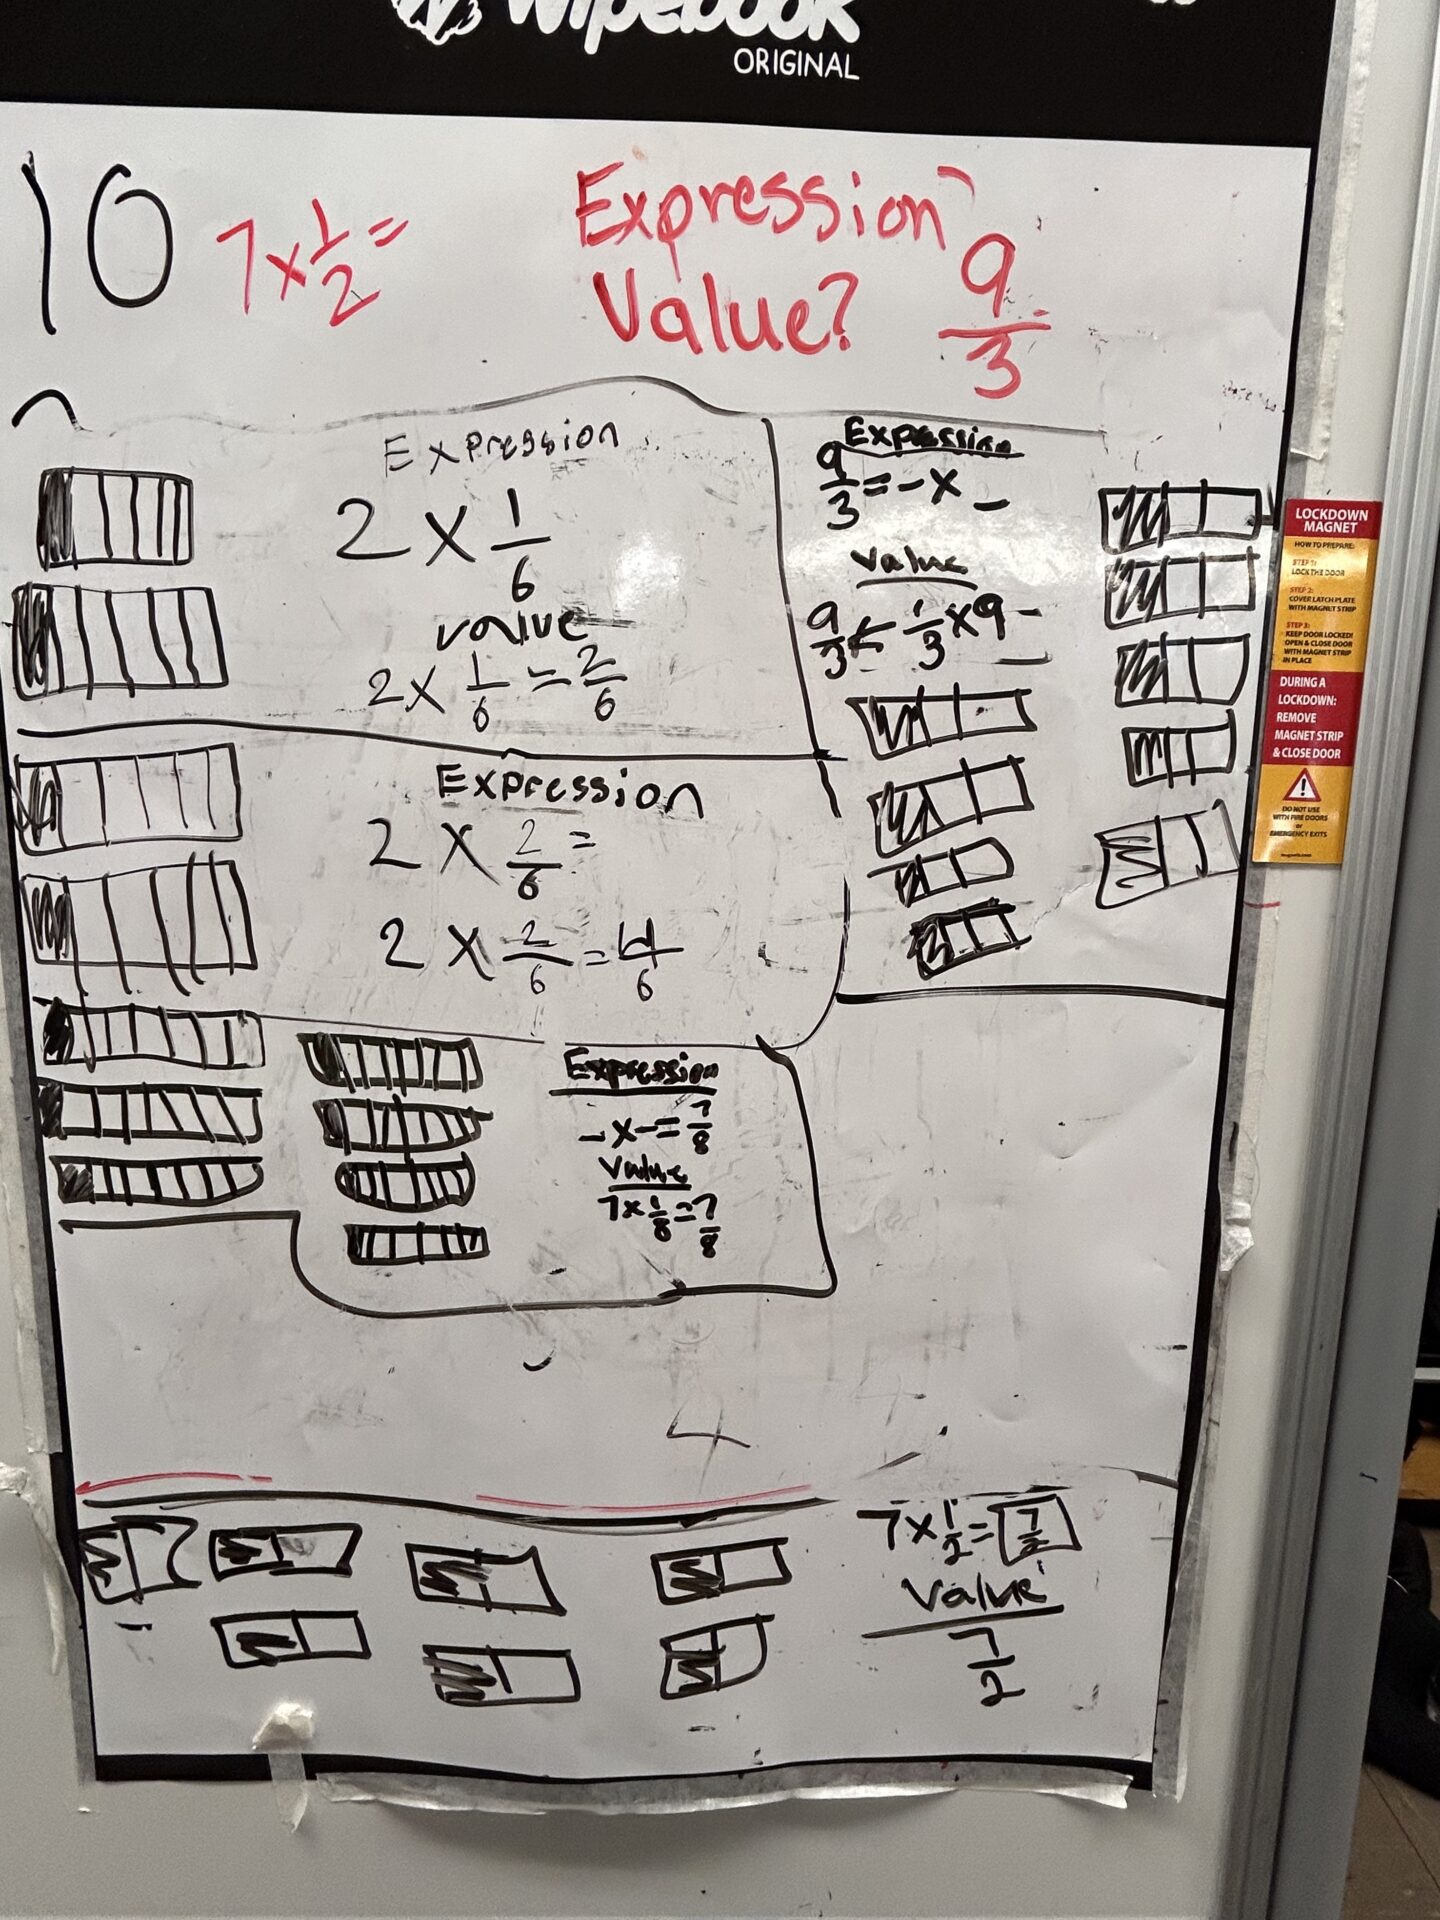 Wipebook
ORIGINAL
10
7 x 1/2 =
Expression
Value? 9/3
Expression
2 x 1/6
value
2 x 1/6 = 2/6
Expression
9/3 = - x -
value
9/3 ← 1/3 x 9
Expression
2 x 2/6 =
2 x 2/6 = 4/6
Expression
- x - = 7/8
Value
7 x 1/8 = 7/8
4
7 x 1/2 = 7/2
Value
7/2
LOCKDOWN
MAGNET
HOW TO PREPARE:
STEP 1:
LOCK THE DOOR
STEP 2:
COVER LATCH PLATE
WITH MAGNET STRIP
STEP 3:
KEEP DOOR LOCKED!
OPEN & CLOSE DOOR
WITH MAGNET STRIP
IN PLACE
DURING A
LOCKDOWN:
REMOVE
MAGNET STRIP
& CLOSE DOOR
DO NOT USE
WITH FIRE DOORS
or
EMERGENCY EXITS